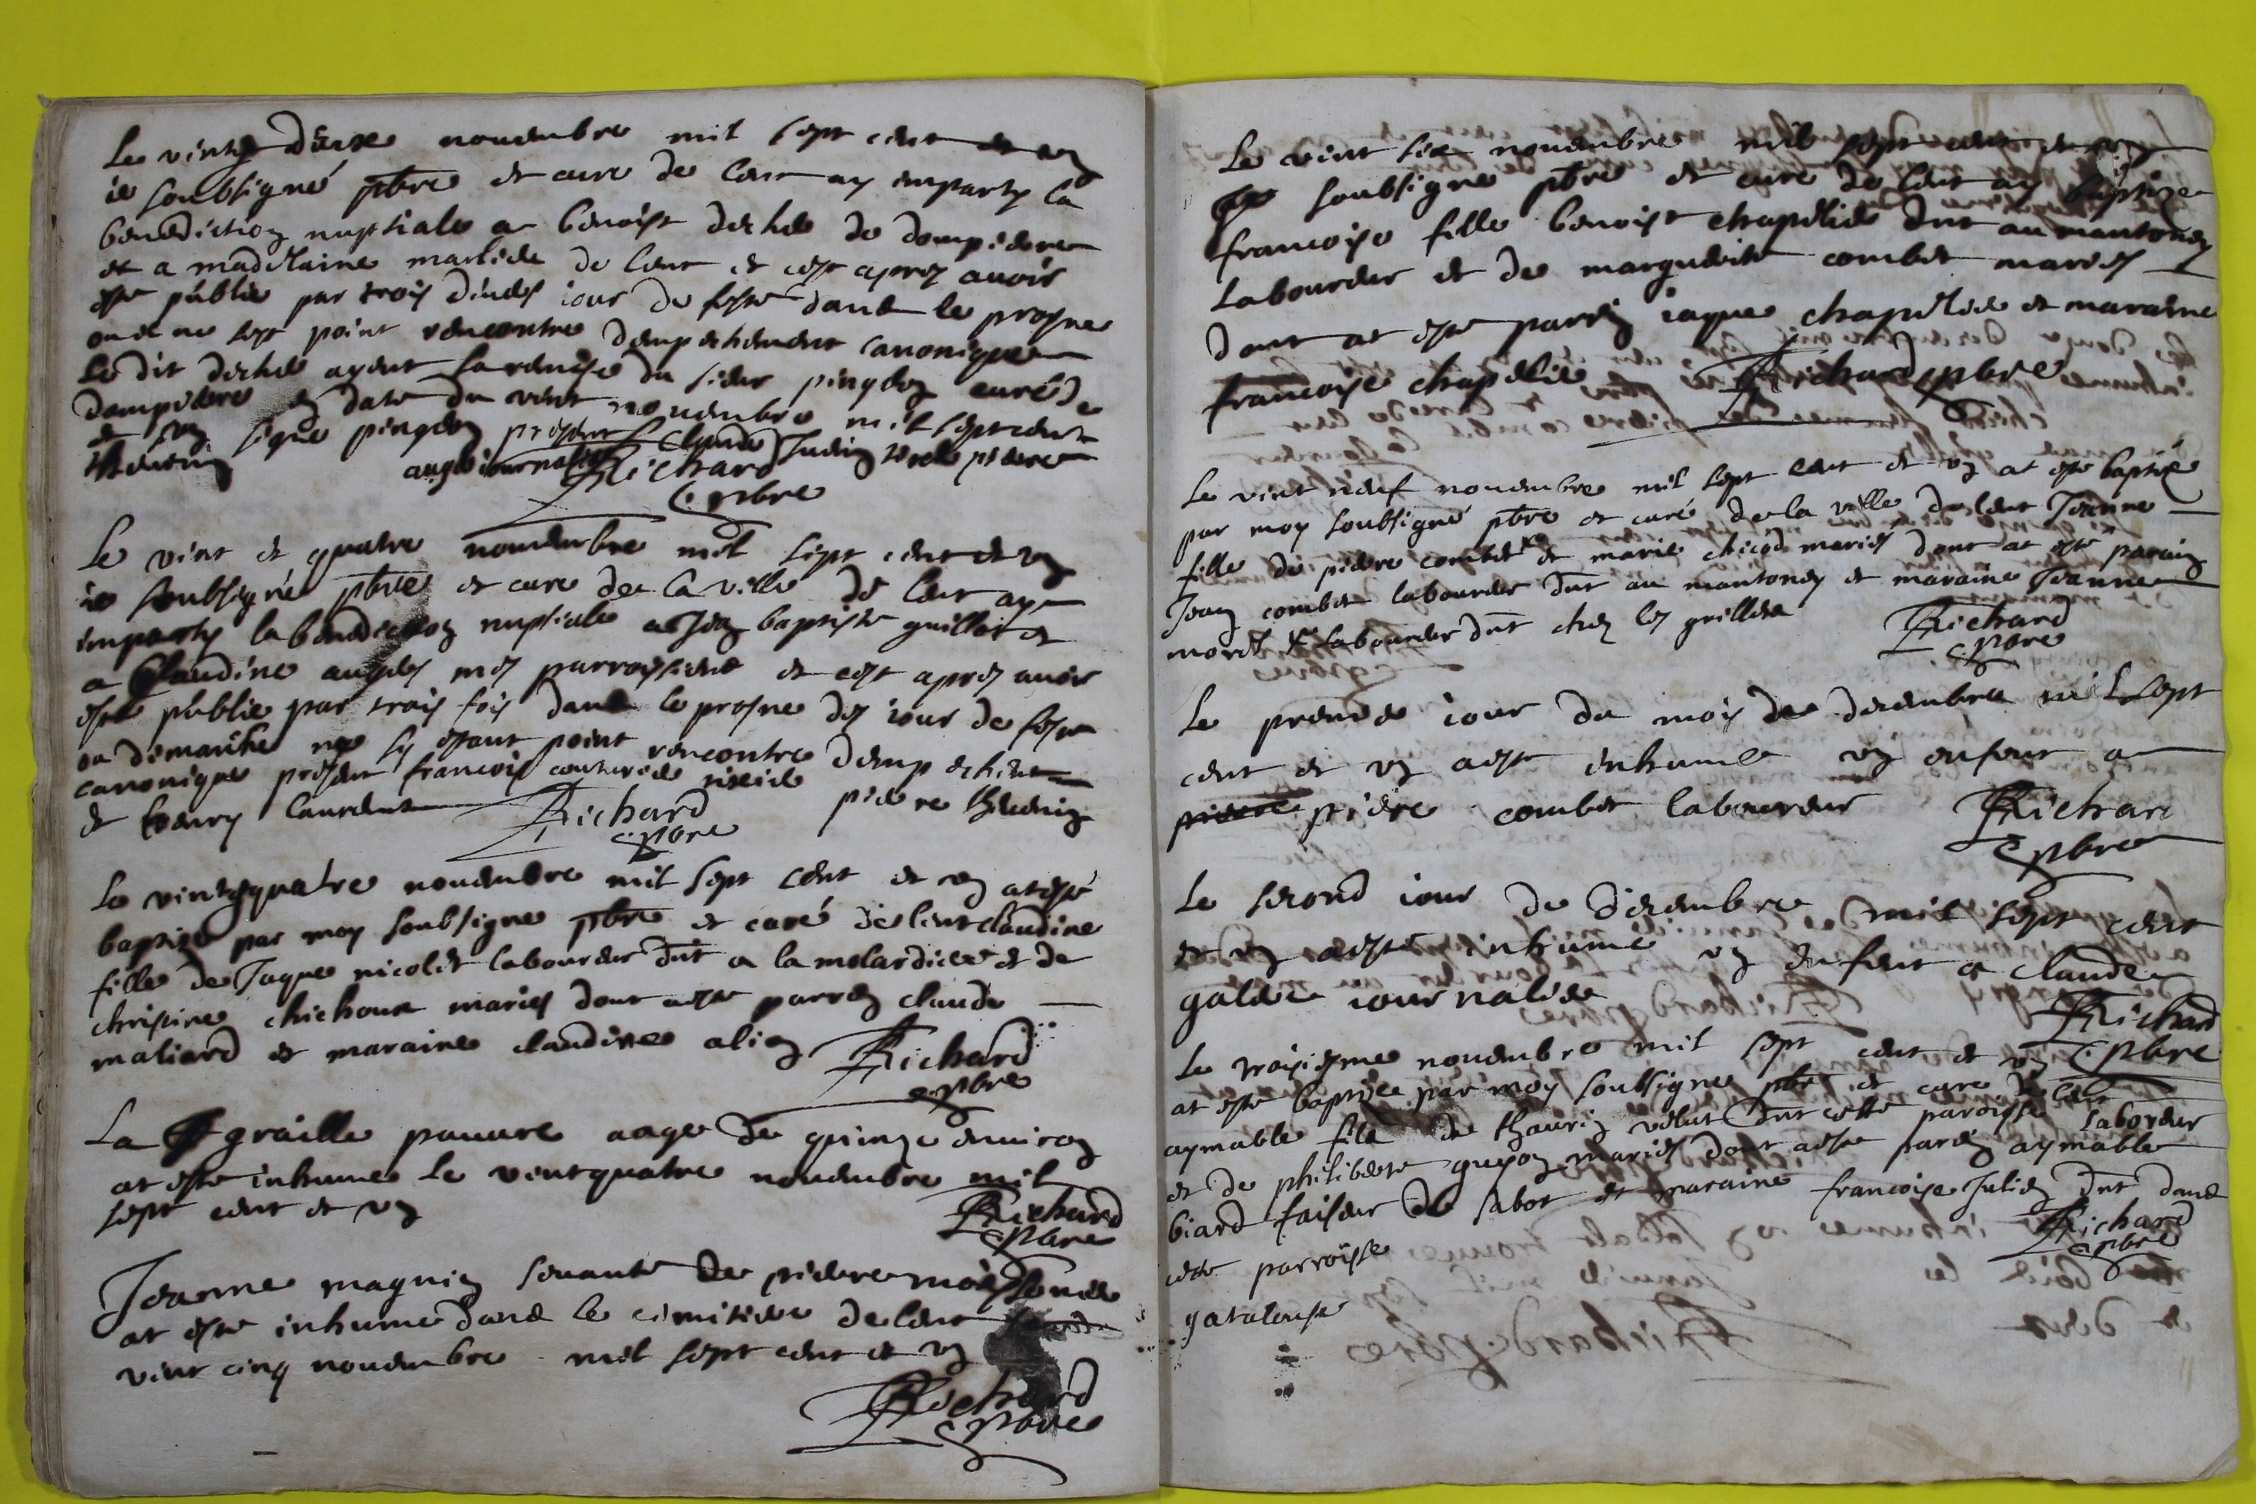 Le vint deuxe nouembre mil sept cent et vn
ie soubsigné pbre et cure de lent ay imparty la
benediction nuptiale a benoist deched de dompierre
et a madelaine de lent et cest aprez auoir
este publie par trois diuers iour de feste dans le prosne
ou il ne sest point rencontre dempechement canonique
Le dit deched ayent la remise du sieur pingeon curé de
dompierre en date du vint nouembre mil sept cent
et vn signe pingeon present Claude Iudin pierre
Richard
pbre
Le vint et quatre nouembre mil sept cent et vn
ie soubsigné pbre et cure de la ville de lent ay
imparty la benediction nuptiale a Jean baptiste guillot et
a Claudine mes parroissiens et cest aprez auoir
este publie par trois fois dans le prosne des iour de feste
ou dimanche ne sy estant point rencontre dempechement
canonique present francois pierre
et laurent
Richard
pbre
Le vint quatre nouembre mil sept cent et vn at esté
baptize par moy soubsigne pbre et curé de lent claudine
fille de Jaque nicolet laboureur dnt a la molardiere et de
christine chichoux mariés dont at este parrin claude
maliard et maraine claudine
Richard
pbre
La graille pauure aage de quinze enuiron
at este inhume le vintquatre nouembre mil
sept cent et vn
Richard
pbre
Jeanne magnin seruante de pierre
at este inhume dans le cimitiere de lent
vint cinq nouembre mil sept cent et vn
Richard
pbre
Le vint six nouembre mil sept cent et vn
soubsigne pbre et cure de lent ay baptize
francoise fille benoist chapelie dnt au mantoney
laboureur et de marguerite combet mariés
dont at este parrin iaque chapelie et maraine
francoise chapelie Richard pbre
Le vint neuf nouembre mil sept cent et vn at este baptisé
par moy soubsigné pbre et curé de la ville de lent Jeanne
fille de pierre combet et marie chicod mariés dont at este parain
Jean combet laboureur dnt au mantoney et maraine Jeanne
morel laboureur dnt chez les grillet
Richard
pbre
Le premie iour du mois de decembre mil sept
cent et vn a este inhume vn enfent a
pierre pierre combet laboureur Richard
pbre
Le second iour de decembre mil sept cent
et vn a este inhume vn enfent a claude
galdet iournalie
Richard
pbre
Le troisieme nouembre mil sept cent et vn
at este baptise par moy soubsigne pbre et cure de lent
aymable fils de thaurin volut dnt cette paroisse laboreur
et de philiberte guyon mariés dont a este parin aymable
biard faiseur de sabot et maraine francoise Julien dnt dans
cette parroisse
Richard
pbre